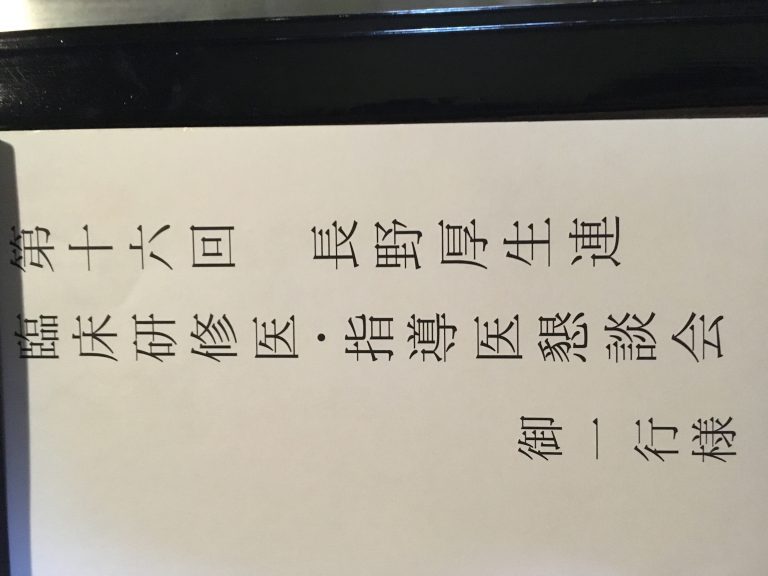 第十六回　長野厚生連
臨床研修医・指導医懇談会
御一行様